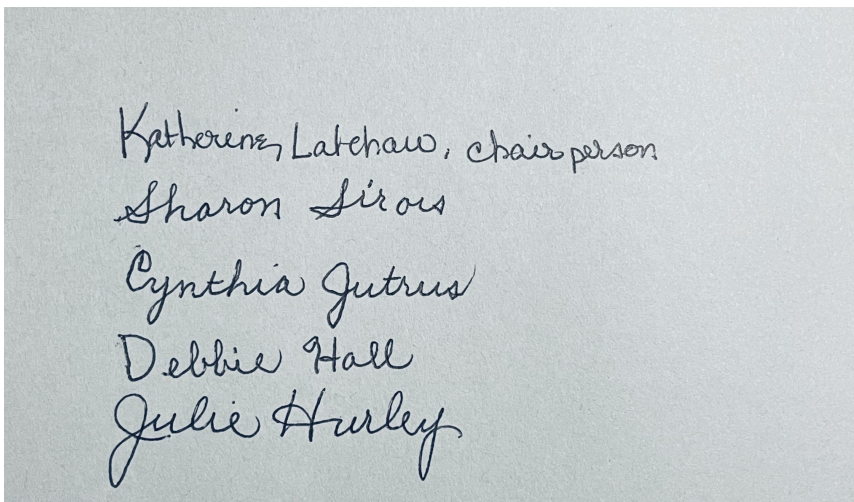 Katherine Latchaw, chairperson
Sharon Sirois
Cynthia Jutrus
Debbie Hall
Julie Hurley